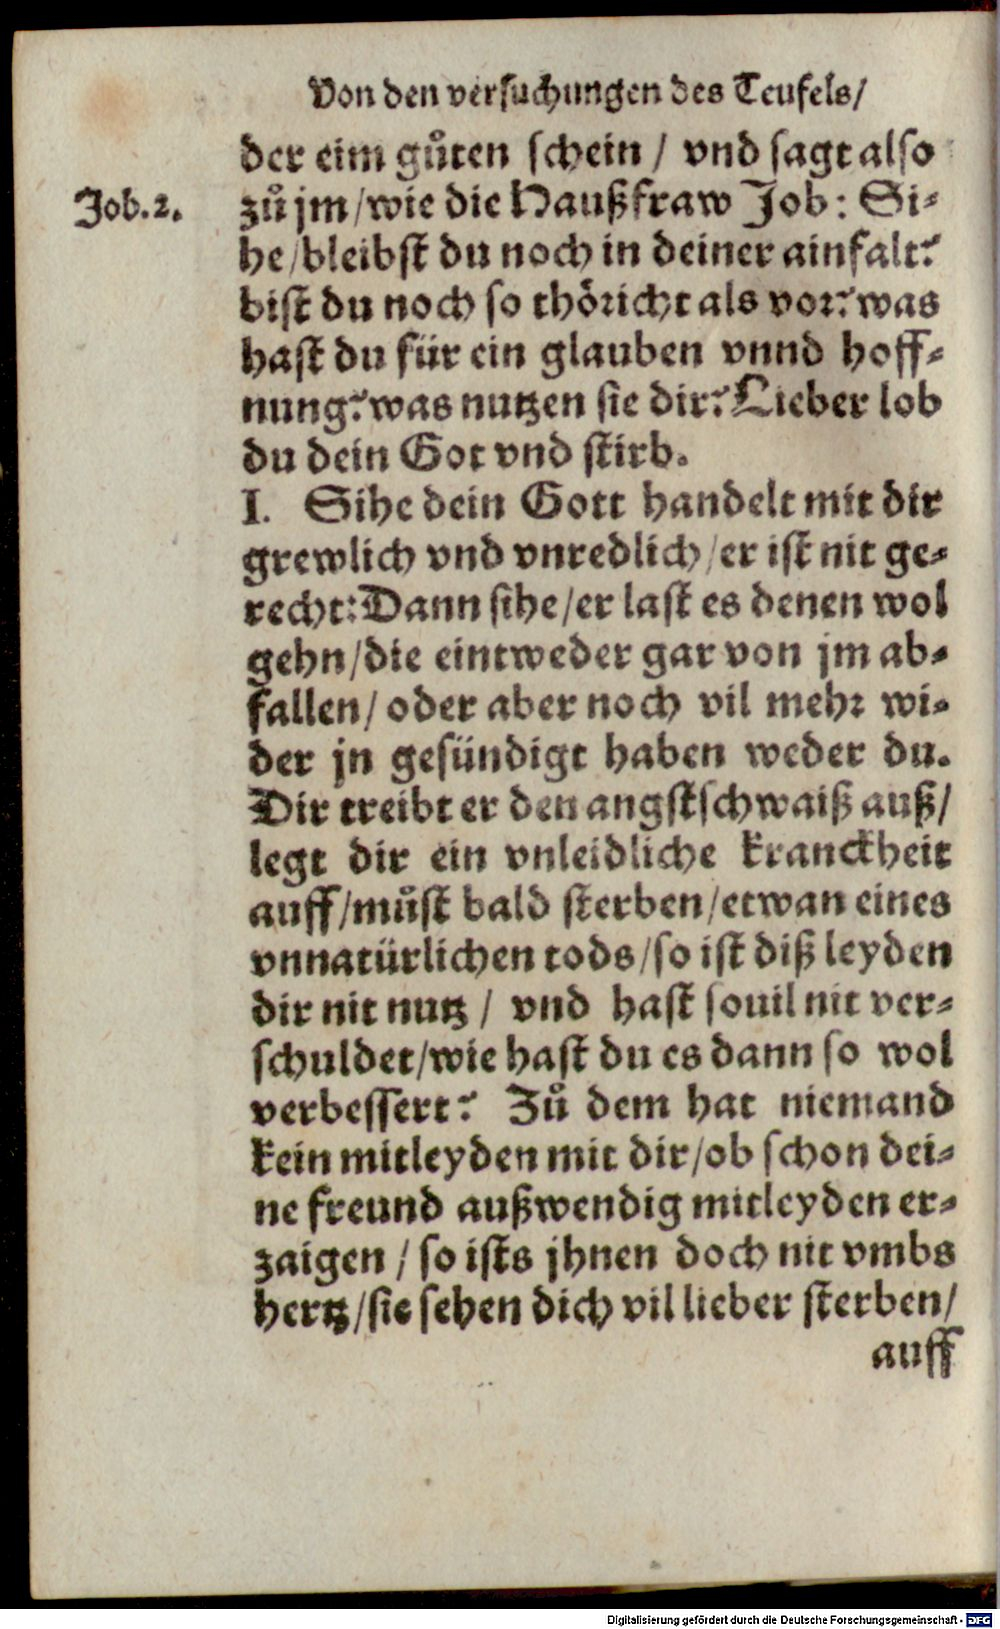 Von den versuchungen des Teufels/
der eim gůten schein / vnd sagt also
Job.2.
zů jm/wie die Haußfraw Job: Si-
he/bleibst du noch in deiner ainfalt?
bist du noch so thöricht als vor? was
hast du für ein glauben vnnd hoff-
nung? was nutzen sie dir? Lieber lob
du dein Got vnd stirb.
I. Sihe dein Gott handelt mit dir
grewlich vnd vnredlich/er ist nit ge-
recht: Dann sihe/er last es denen wol
gehn/die eintweder gar von jm ab-
fallen/ oder aber noch vil mehr wi-
der jn gesündigt haben weder du.
Dir treibt er den angstschwaiß auß/
legt dir ein vnleidliche kranckheit
auff/můst bald sterben/etwan eines
vnnatürlichen tods/so ist diß leyden
dir nit nutz / vnd hast souil nit ver-
schuldet/wie hast du es dann so wol
verbessert? Zů dem hat niemand
kein mitleyden mit dir/ob schon dei-
ne freund außwendig mitleyden er-
zaigen / so ists jhnen doch nit vmbs
hertz/sie sehen dich vil lieber sterben/
auff
Digitalisierung gefördert durch die Deutsche Forschungsgemeinschaft - DFG